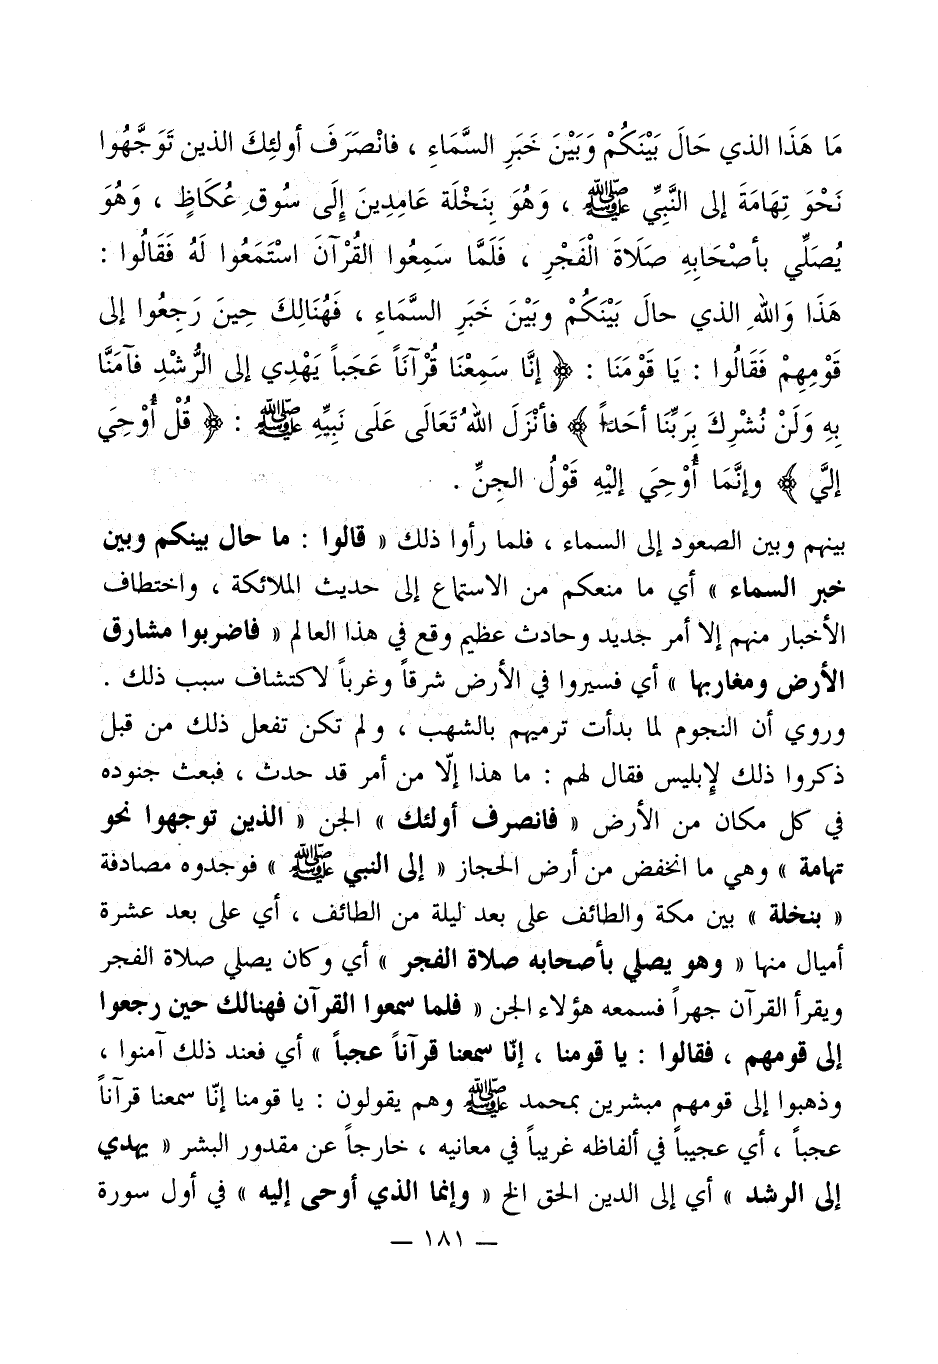 مَا هَذَا الذي حَالَ بَيْنَكُمْ وَبَيْنَ خَبَرِ السَّمَاءِ ، فانْصَرَفَ أولئِكَ الذين تَوَجَّهُوا
نَحْوَ تِهَامَةَ إلى النَّبِيِّ ﷺ ، وَهُوَ بِنَخْلَة عَامِدِينَ إِلَى سُوقِ عُكَاظٍ ، وَهُوَ
يُصَلِّي بأصْحَابِهِ صَلَاةَ الْفَجْرِ ، فَلَمَّا سَمِعُوا القُرْآنَ اسْتَمَعُوا لَهُ فَقَالُوا :
هَذَا وَاللهِ الذي حالَ بَيْنَكُمْ وبَيْنَ خَبَرِ السَّمَاءِ ، فَهُنَالِكَ حِينَ رَجِعُوا إلى
قَوْمِهِمْ فَقَالُوا : يَا قَوْمَنَا : ﴿ إنَّا سَمِعْنَا قُرْآنَاً عَجَباً يَهْدِي إلى الرُّشْدِ فآمَنَّا
بِهِ وَلَنْ نُشْرِكَ بِرَبِّنَا أحَداً ﴾ فأنْزَلَ اللهُ تَعَالَى عَلَى نَبِيِّهِ ﷺ : ﴿ قُلْ أُوْحِيَ
إليَّ ﴾ وإنَّمَا أُوْحِيَ إليْهِ قَوْلُ الجِنِّ .
بينهم وبين الصعود إلى السماء ، فلما رأوا ذلك « قالوا : ما حال بينكم وبين
خبر السماء » أي ما منعكم من الاستماع إلى حديث الملائكة ، واختطاف
الأخبار منهم إلا أمر جديد وحادث عظيم وقع في هذا العالم « فاضربوا مشارق
الأرض ومغاربها » أي فسيروا في الأرض شرقاً وغرباً لاكتشاف سبب ذلك .
وروي أن النجوم لما بدأت ترميهم بالشهب ، ولم تكن تفعل ذلك من قبل
ذكروا ذلك لإبليس فقال لهم : ما هذا إلّا من أمر قد حدث ، فبعث جنوده
في كل مكان من الأرض « فانصرف أولئك » الجن « الذين توجهوا نحو
تهامة » وهي ما انخفض من أرض الحجاز « إلى النبي ﷺ » فوجدوه مصادفة
« بنخلة » بين مكة والطائف على بعد ليلة من الطائف ، أي على بعد عشرة
أميال منها « وهو يصلي بأصحابه صلاة الفجر » أي وكان يصلي صلاة الفجر
ويقرأ القرآن جهراً فسمعه هؤلاء الجن « فلما سمعوا القرآن فهنالك حين رجعوا
إلى قومهم ، فقالوا : يا قومنا ، إنّا سمعنا قرآناً عجباً » أي فعند ذلك آمنوا ،
وذهبوا إلى قومهم مبشرين بمحمد ﷺ وهم يقولون : يا قومنا إنّا سمعنا قرآناً
عجباً ، أي عجيباً في ألفاظه غريباً في معانيه ، خارجاً عن مقدور البشر « يهدي
إلى الرشد » أي إلى الدين الحق الخ « وإنما الذي أوحى إليه » في أول سورة
— ١٨١ —